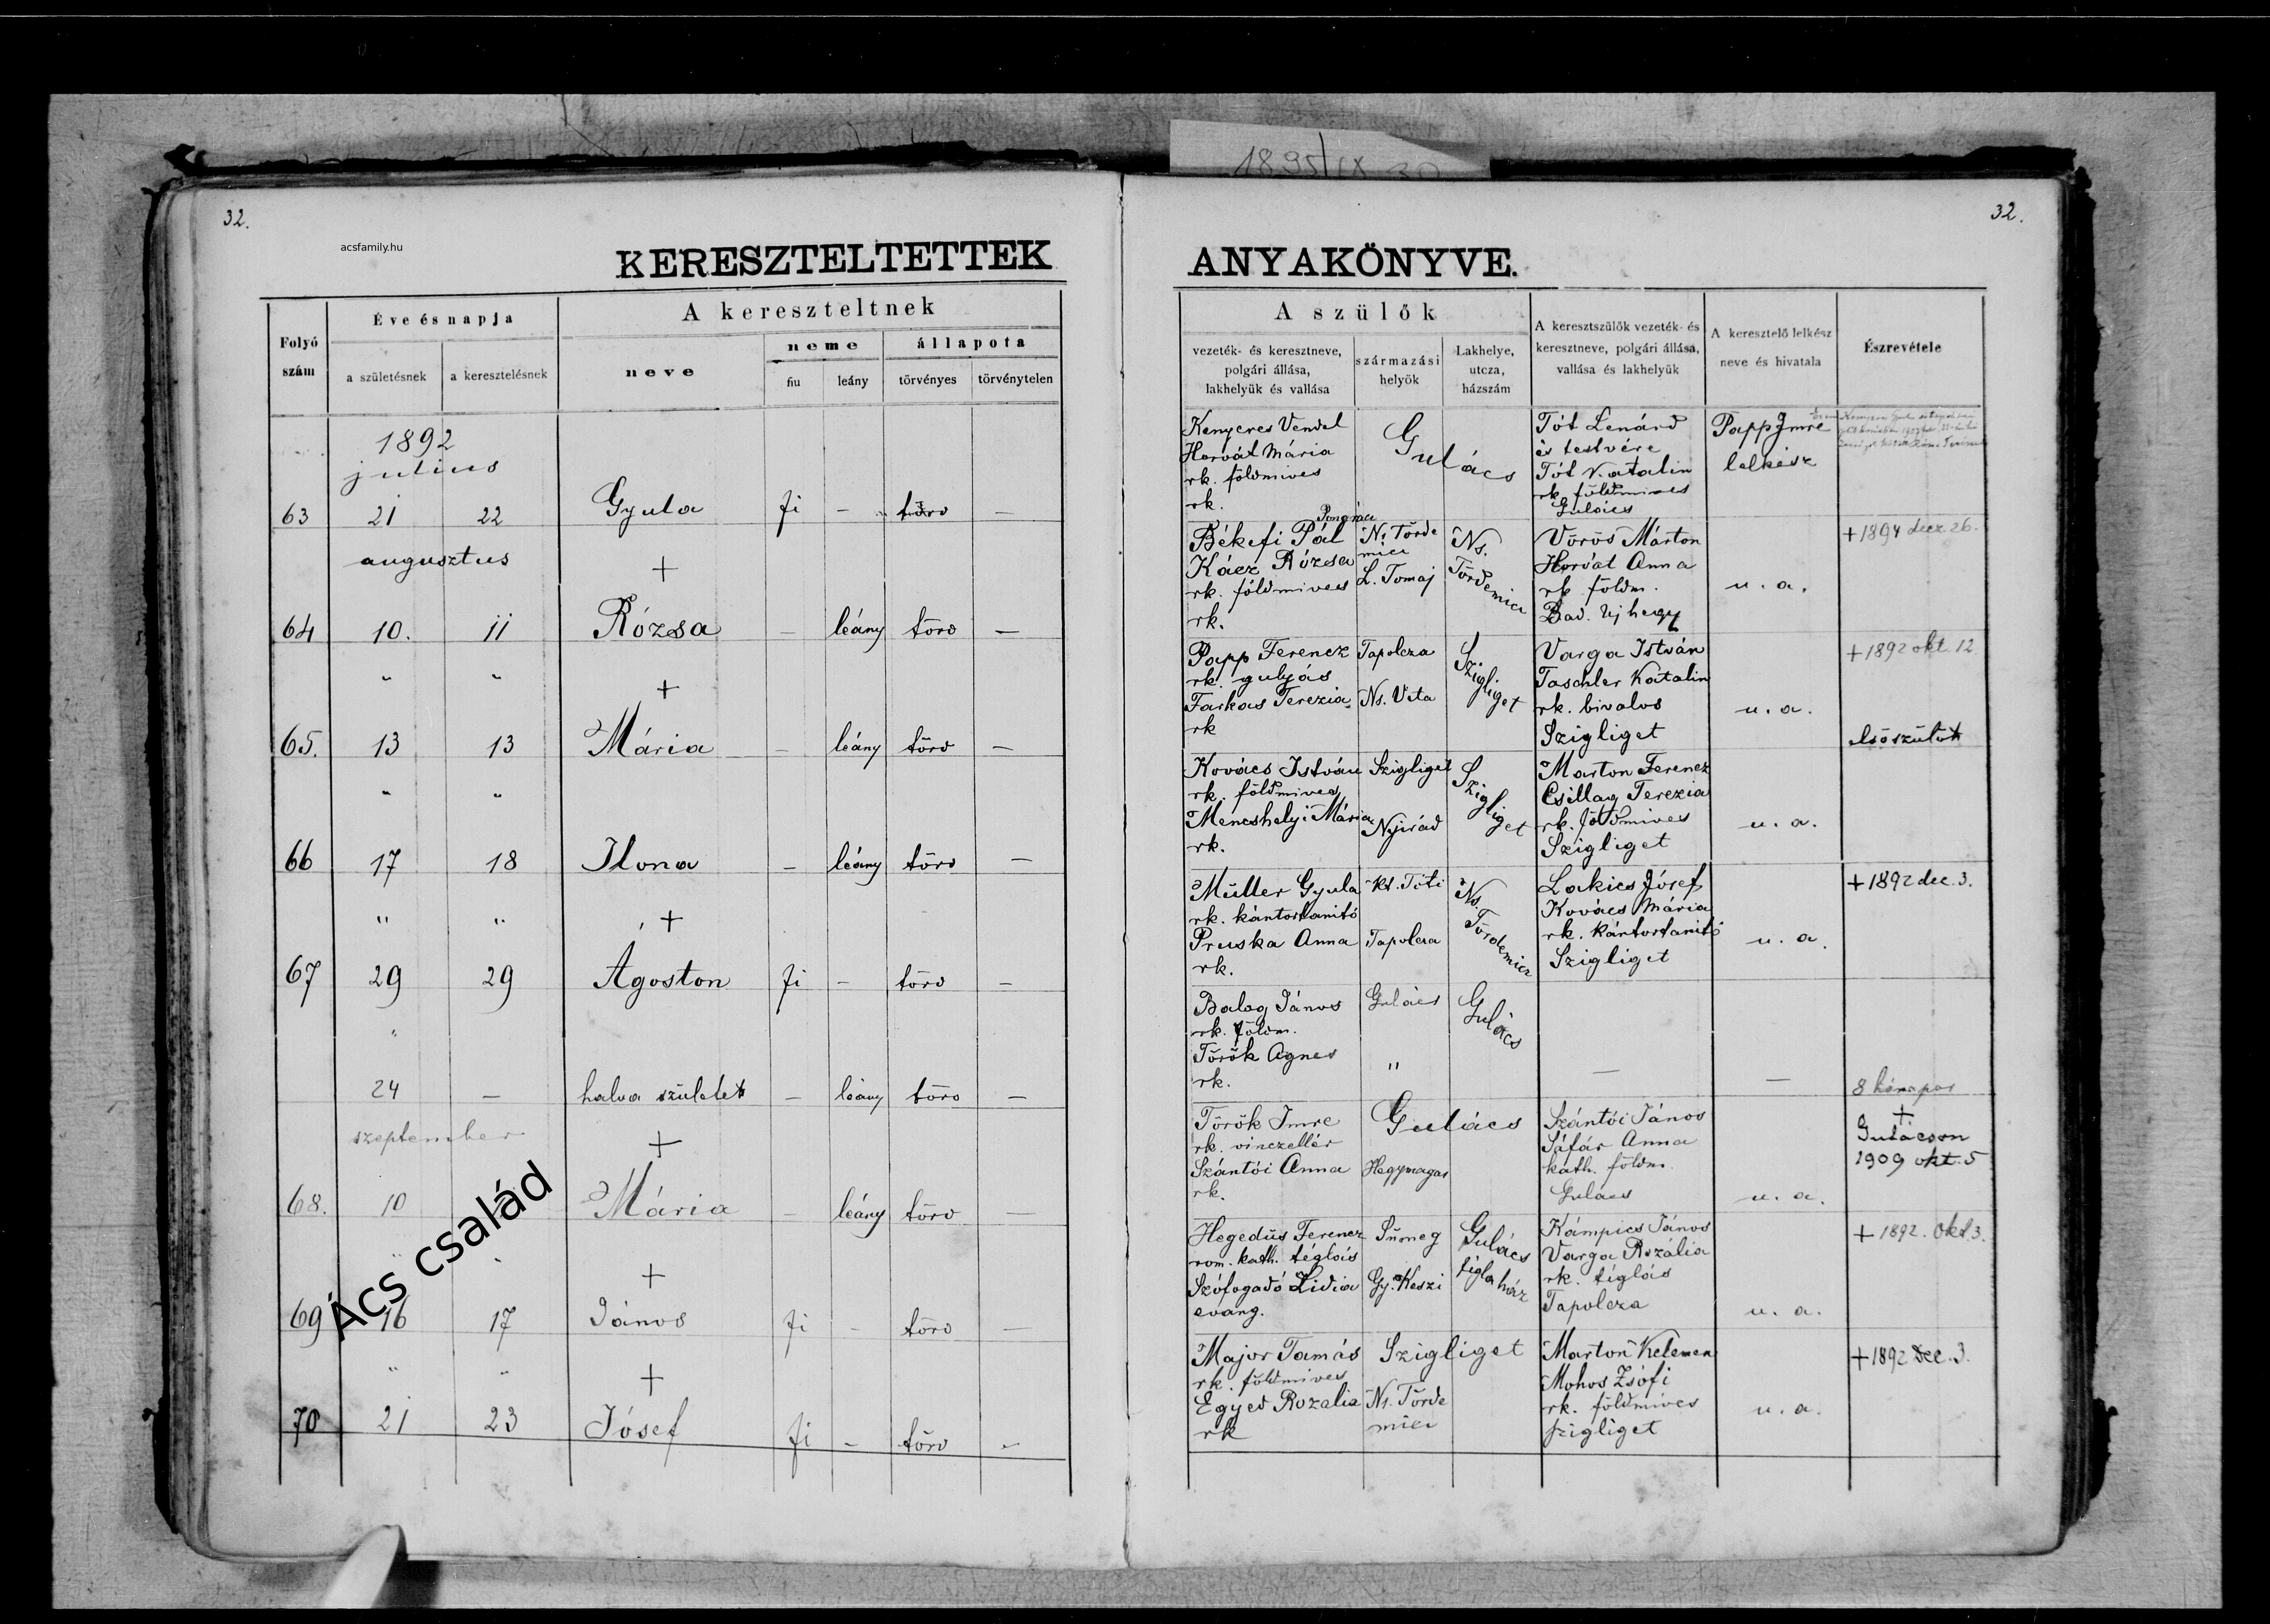 1895/IX 30
32.
32.
acsfamily.hu
KERESZTELTETTEK
ANYAKÖNYVE.
Folyó szám
Éve és napja
a születésnek
a keresztelésnek
A kereszteltnek
neve
neme
fiu
leány
állapota
törvényes
törvénytelen
A szülők
vezeték- és keresztneve,
polgári állása,
lakhelyük és vallása
származási
helyök
Lakhelye,
utcza,
házszám
A keresztszülők vezeték- és
keresztneve, polgári állása,
vallása és lakhelyük
A keresztelő lelkész
neve és hivatala
Észrevétele
1892
julius
63 21 22 Gyula fi - törv -
Kenyeres Vendel
Horvát Mária
rk. földmives
rk.
Gulács
Tót Lenárd
és testvére
Tót Katalin
rk. földmives
Gulács
Papp Imre
lelkész
augusztus
+
64 10. 11 Rózsa - leány törv -
Pongrácz
Békefi Pál
Kácz Rózsa
rk. földmives
rk.
Ns Törde
micz
L. Tomaj
Ns.
Tördemicz
Vörös Márton
Horvát Anna
rk. földm.
Bad. Ujhegy
u. a.
+ 1894 decz 26.
" "
+
65. 13 13 Mária - leány törv -
Papp Ferencz
rk. gulyás
Farkas Terezia
rk
Tapolcza
Ns. Vita
Szigliget
Varga István
Taschler Katalin
rk. bivalos
Szigliget
u. a.
+ 1892 okt. 12
elsőszülött
" "
66 17 18 Ilona - leány törv -
Kovács István
rk. földmives
Mencshelyi Mária
rk.
Szigliget
Nyirád
Szigliget
Marton Ferencz
Csillag Terezia
rk. földmives
Szigliget
u. a.
" "
+
67 29 29 Agoston fi - törv -
Müller Gyula
rk. kántortanitó
Pruska Anna
rk.
Kt. Tóti
Tapolcza
Ns.
Tördemicz
Lakics József
Kovács Mária
rk. kántortanitó
Szigliget
u. a.
+ 1892 dec. 3.
"
24 - halva született - leány törv -
Balog János
rk. földm.
Török Agnes
rk.
Gulács
"
Gulács
-
-
8 hónapos
szeptember
+
68. 10 Mária - leány törv -
Török Imre
rk. vinczellér
Szántói Anna
rk.
Gulács
Hegymagas
Szántói János
Sáfár Anna
kath. földm.
Gulács
u. a.
+
Gulácson
1909 okt. 5
" "
+
69 16 17 János fi - törv -
Hegedüs Ferencz
rom. kath. téglás
Szófogadó Lidia
evang.
Sümeg
Gy. Keszi
Gulács
téglaház
Kámpics János
Varga Rozália
rk. téglás
Tapolcza
u. a.
+ 1892. Okt. 3.
" "
+
70 21 23 József fi - törv -
Major Tamás
rk. földmives
Egyed Rozalia
rk
Szigliget
Ns. Törde
micz
Marton Kelemen
Mohos Zsófi
rk. földmives
Szigliget
u. a.
+ 1892 Dec. 3.
Ács család